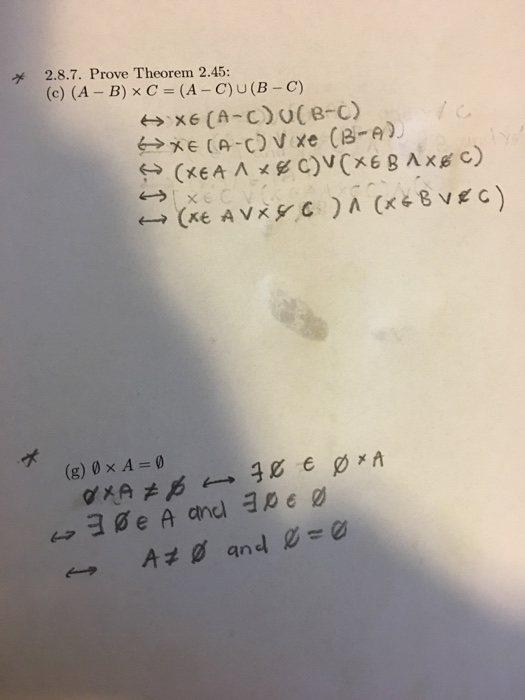 * 2.8.7. Prove Theorem 2.45:
(c) (A − B) × C = (A − C) ∪ (B − C)
↔ x∈(A-C)∪(B-C)
↔ x∈(A-C) ∨ x∈(B-A)
↔ (x∈A ∧ x∉C)∨(x∈B ∧ x∉C)
↔ (x∈C
↔ (x∈A ∨ x∉C) ∧ (x∈B ∨ ∉C)
* (g) ∅ × A = ∅
∅×A ≠ ∅ ↔ ∃∅ ∈ ∅×A
↔ ∃∅∈A and ∃∅∈∅
↔ A≠∅ and ∅=∅